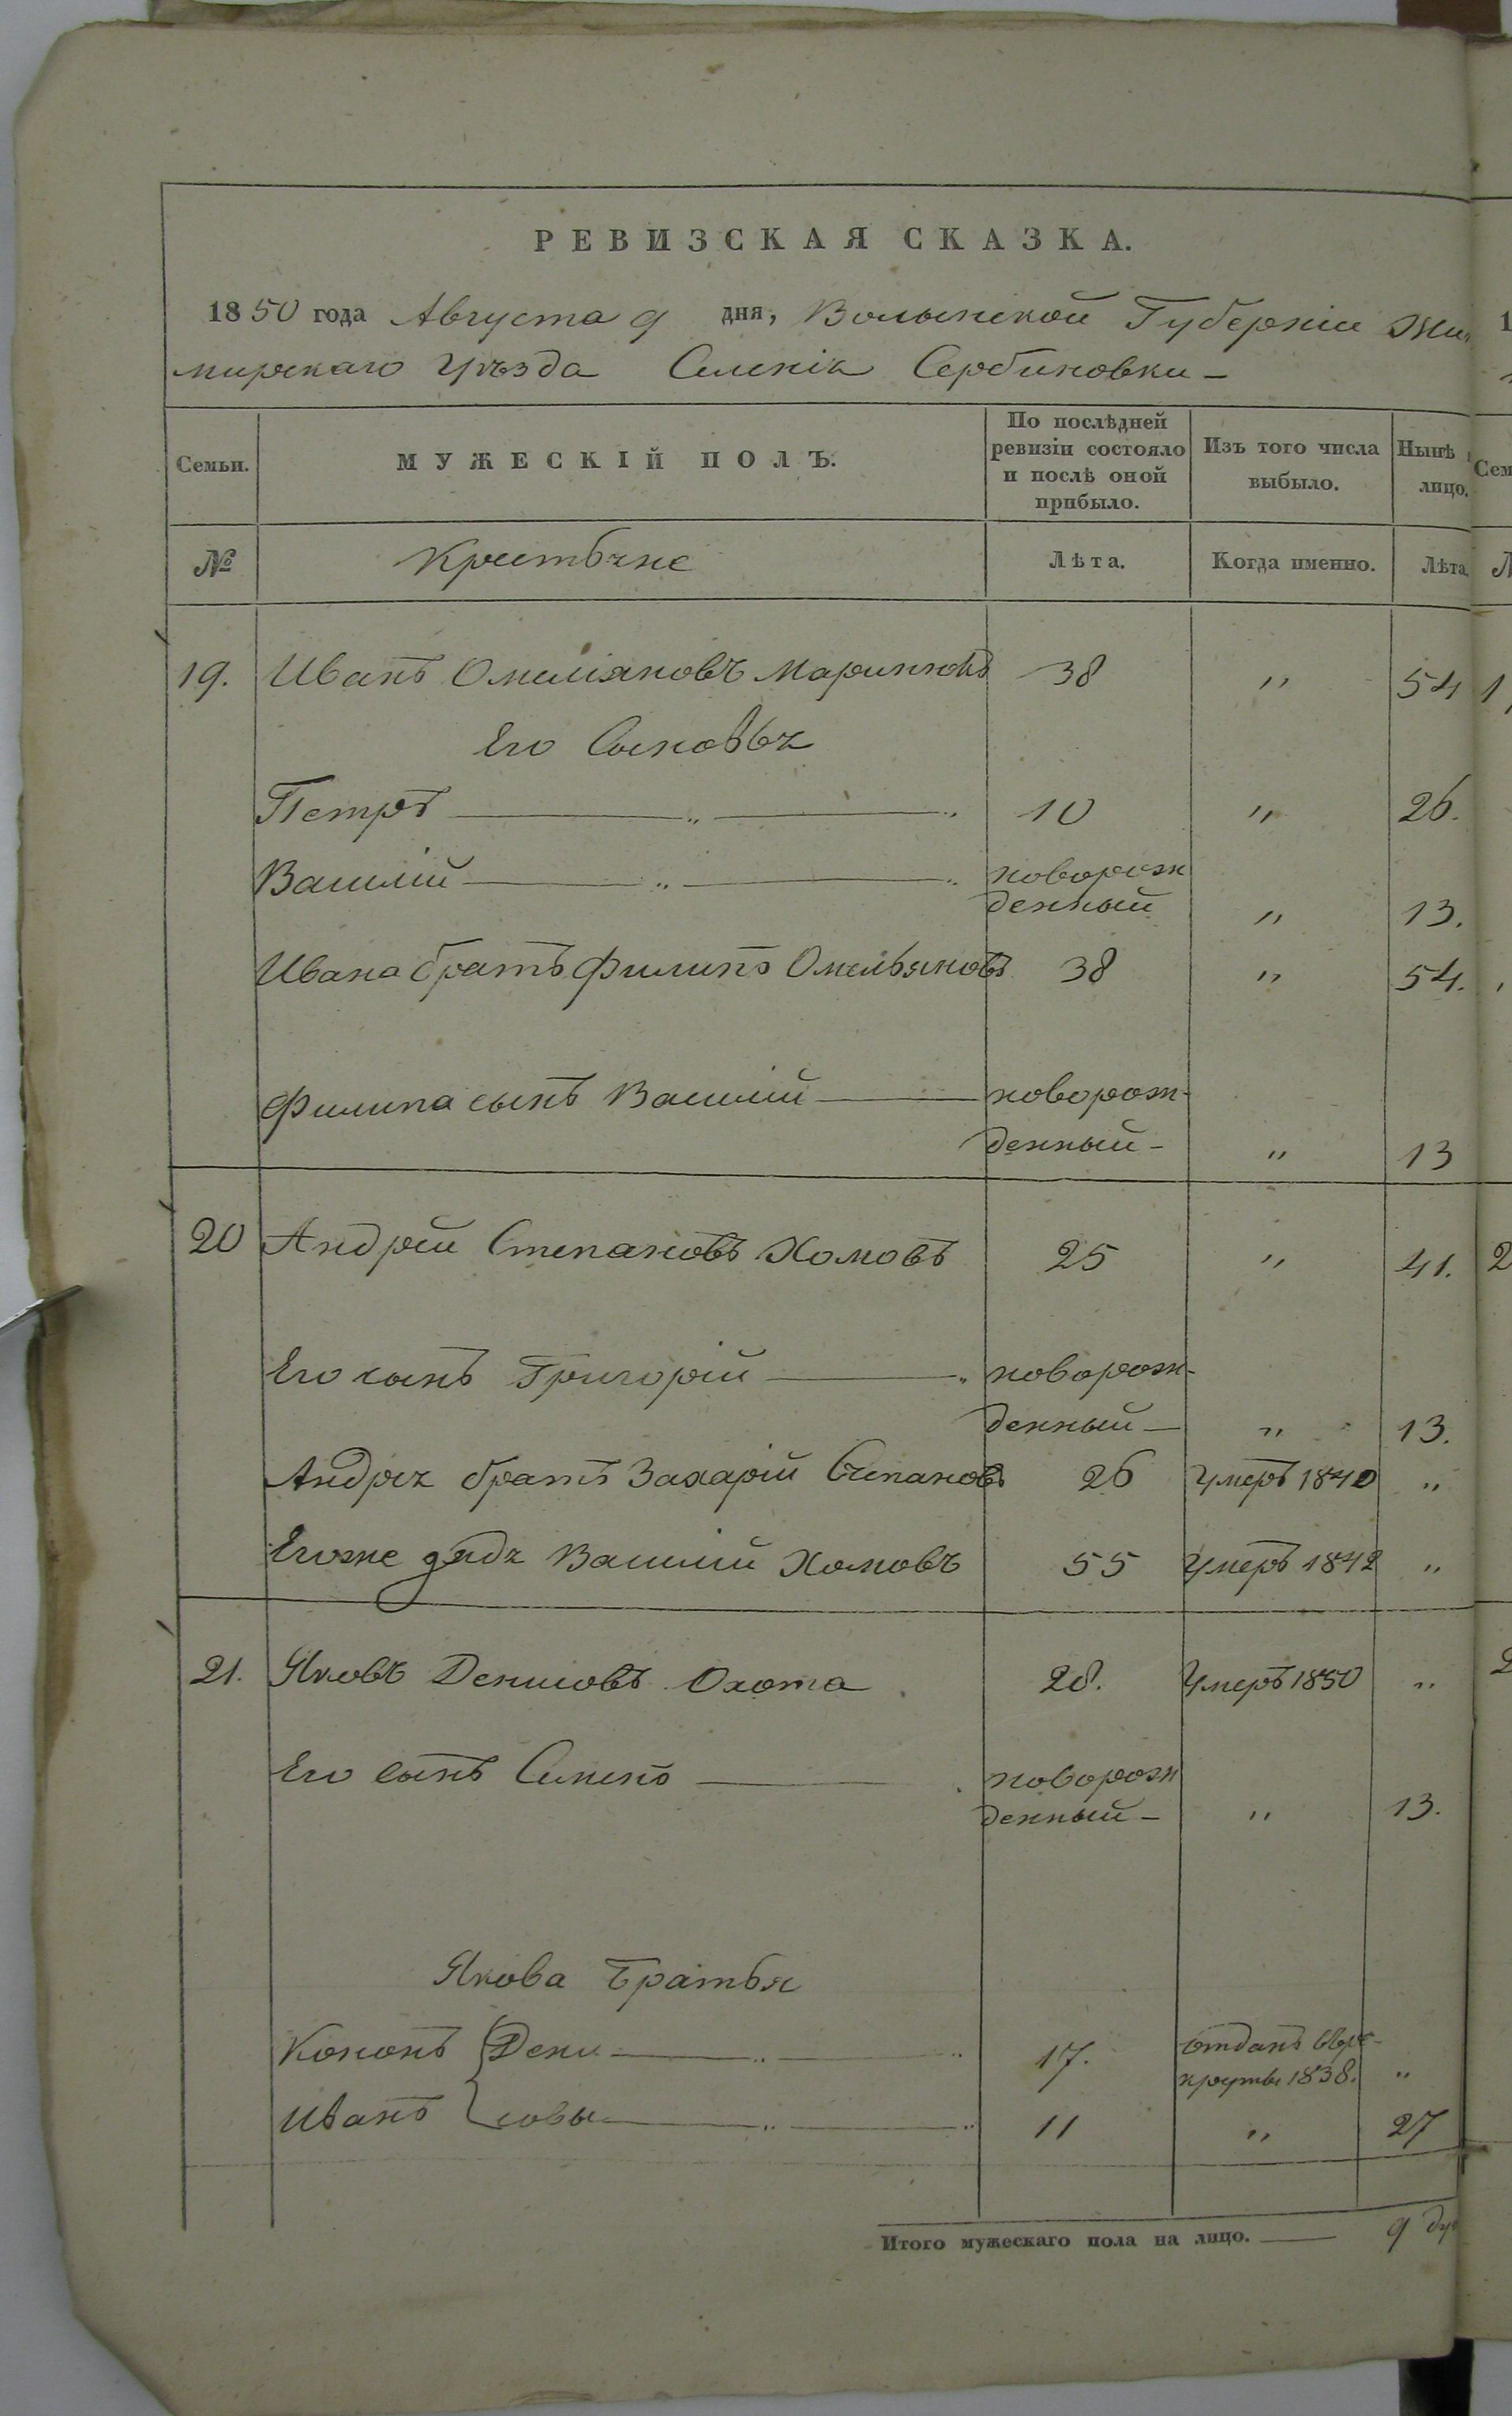 РЕВИЗСКАЯ СКАЗКА.
1850 года Августа 9 дня, Волынской Губерніи Жи
мирскаго Уѣзда Селенія Сербиновки -
Семьи. МУЖЕСКІЙ ПОЛЪ. По послѣдней ревизіи состояло и послѣ оной прибыло. Изъ того числа выбыло. Нынѣ лицо.
№ Крестьяне Лѣта. Когда именно. Лѣта.
19. Иванъ Омеліановъ 38 " 54
Его Сыновья
Петръ " 10 " 26.
Василій " новорож
денный " 13.
Ивана братъ Филипъ Омельяновъ 38 " 54.
Филипа сынъ Василій новорож-
денный- " 13
20 Андрей Степановъ Хомовъ 25 " 41.
Его сынъ Григорій " новорож-
денный- " 13.
Андрея братъ Захарій Степановъ 26 Умеръ 1840 "
Егоже дядя Василій Хомовъ 55 Умеръ 1842 "
21. Яковъ Денисовъ Охота 28. Умеръ 1850 "
Его сынъ Семенъ новорож
денный- " 13.
Якова Братья
Кононъ { Дени " 17. отданъ вре-
круты 1838. "
Иванъ { совы " 11 " 27
Итого мужескаго пола на лицо. 9